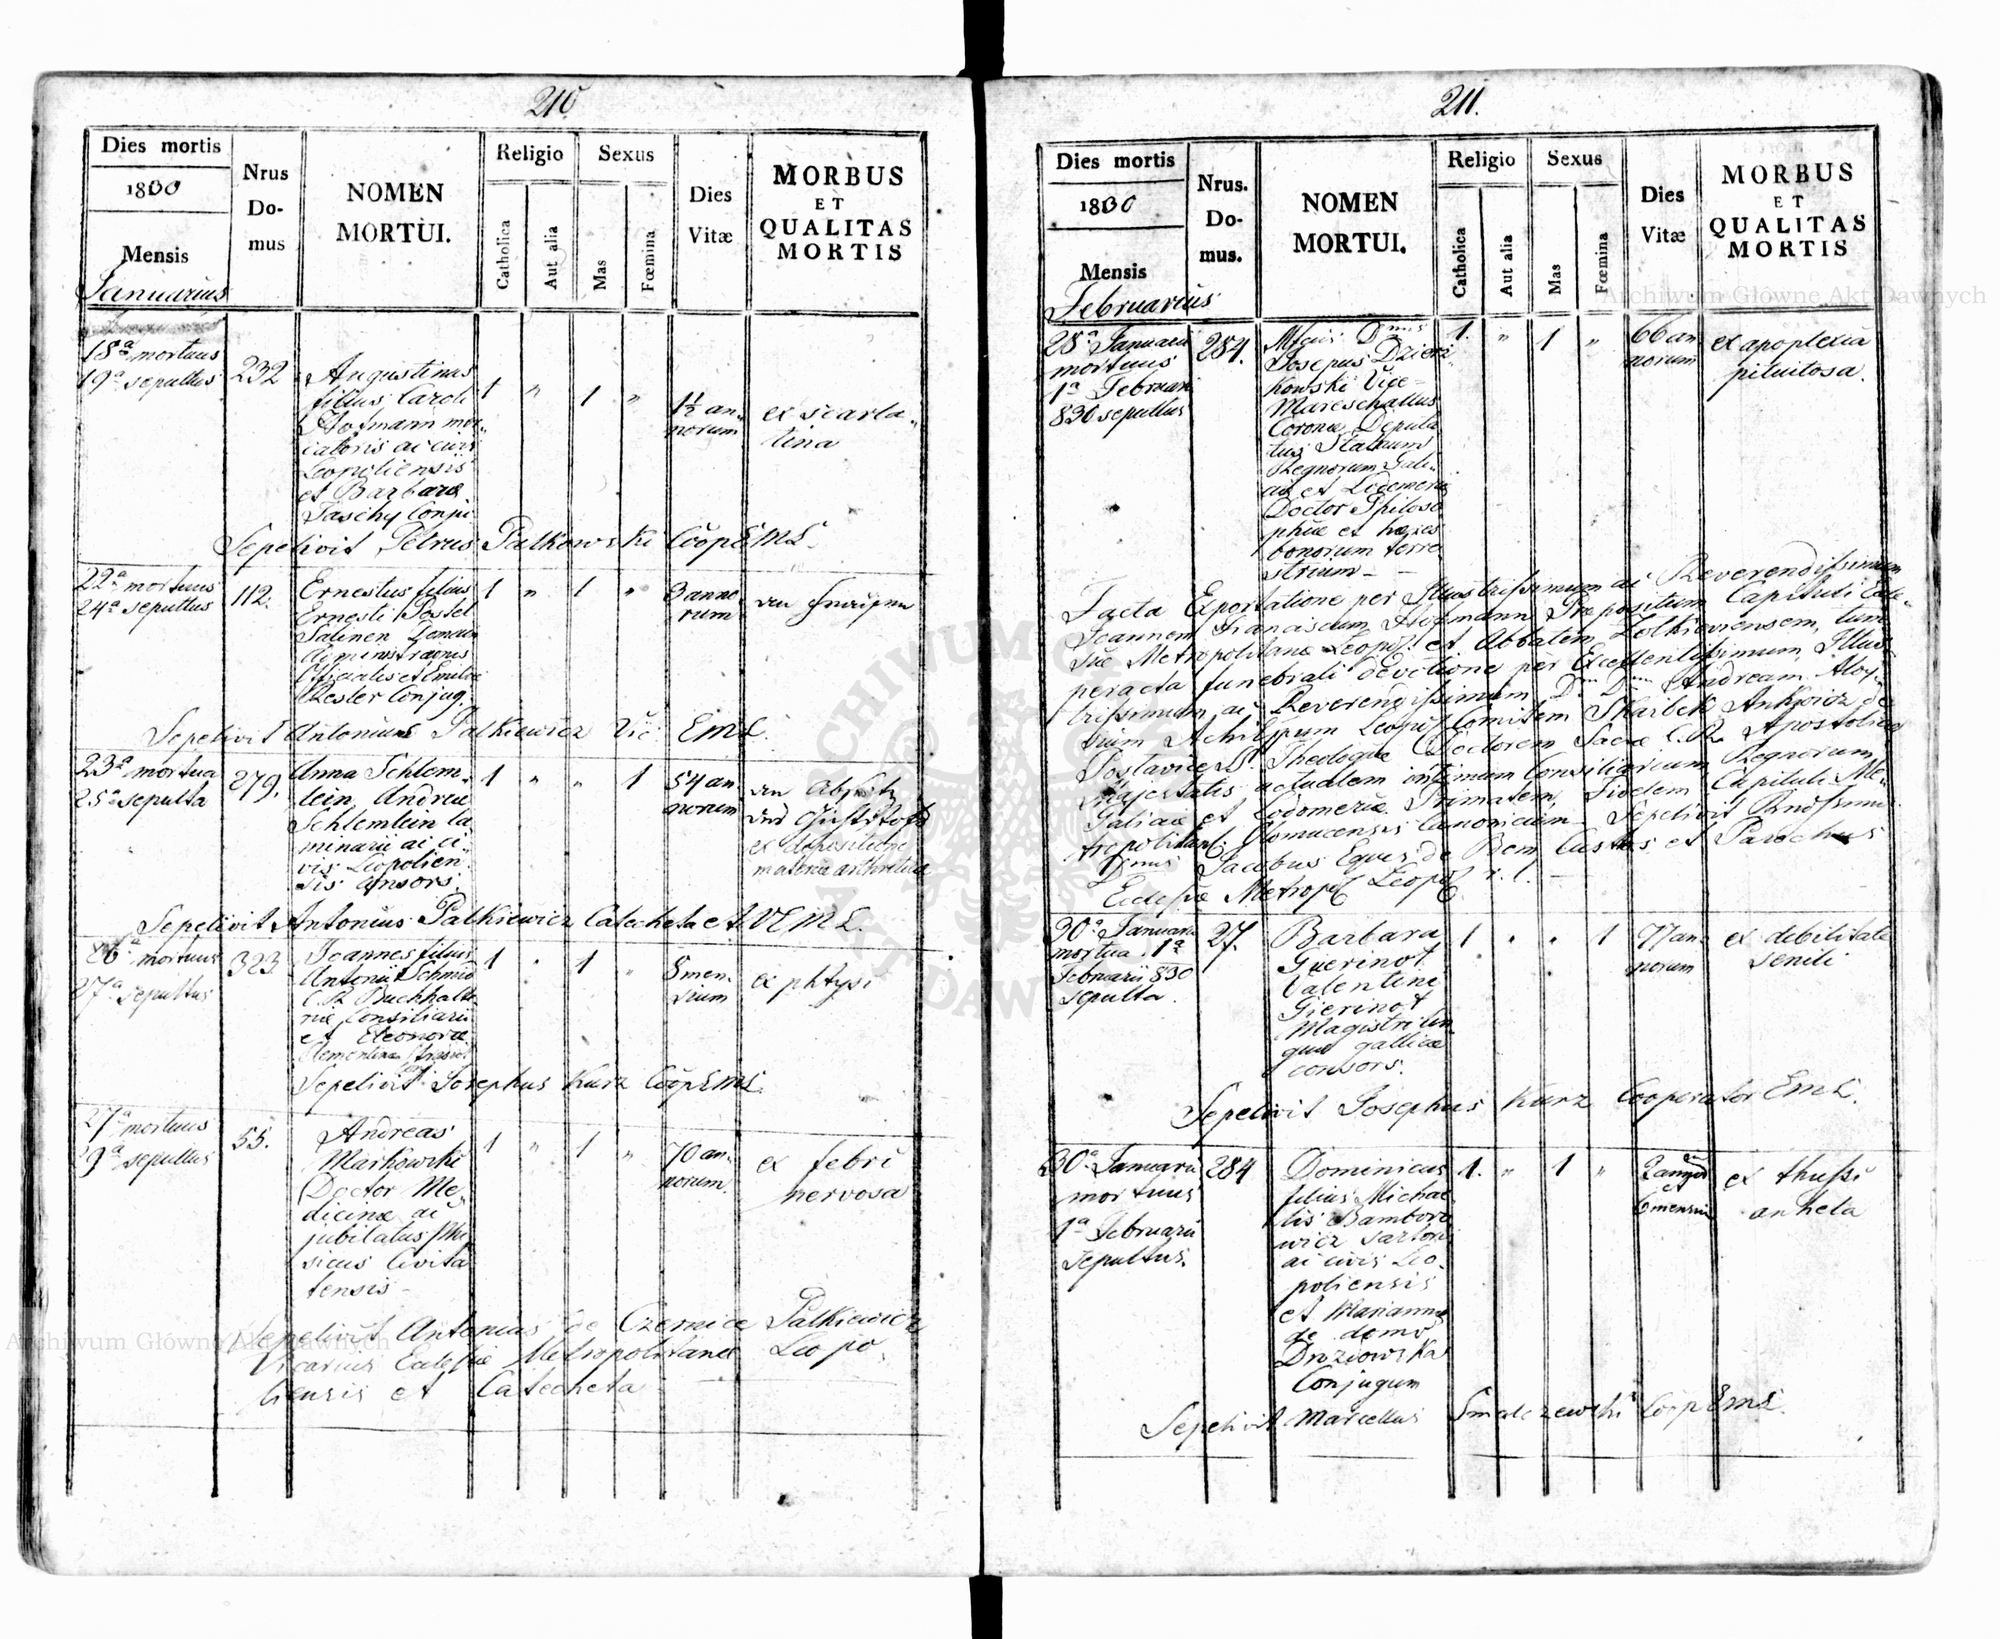 210
Dies mortis
1830
Mensis
Januarius
Nrus
Do-
mus
NOMEN
MORTUI.
Religio
Catholica
Aut alia
Sexus
Mas
Fœmina
Dies
Vitæ
MORBUS
ET
QUALITAS
MORTIS
18ª mortuus
19ª sepultus
232
Augustinus
filius Caroli
Hofmann mer-
catoris ac civis
Leopoliensis
et Barbaræ
Taschy Conju
1 " 1 "
1½ an-
norum
ex scarla-
tina
Sepelivit Petrus Palkowski Coop EML.
22ª mortuus
24ª sepultus
112.
Ernestus filius
Ernesti
Salinen
Officialis et Emiliæ
Kesler Conjug.
1 " 1 "
3 anno
rum
Sepelivit Antonius Palkiewicz Vic. EML.
23ª mortua
25ª sepulta
279.
Anna Schlem-
lein Andreæ
Schlemlein la
minarii ac ci-
vis Leopolien
sis consors.
1 " " 1
54 an
norum
ex depositione
materiæ arthriticæ
Sepelivit Antonius Palkiewicz Catecheta et VEML.
26ª mortuus
27ª sepultus
323
Joannes filius
Antonii Schmid
C. R. Buchhalte
riæ Consiliarii
et Eleonoræ
Clementinæ
1 " 1 "
8 men-
sium
ex phtysi
Sepelivit Josephus Kurz Coop EML.
27ª mortuus
29ª sepultus
55.
Andreas
Markowski
Doctor Me-
dicinæ ac
jubilatus Phi
sicus Civita
tensis -
1 " 1 "
70 an-
norum.
ex febri
nervosa
Sepelivit Antonius de Czernice Palkiewicz
Vicarius Eclesiæ Metropolitanæ Leopo-
liensis et Catecheta
211.
Dies mortis
1830
Mensis
Februarius
Nrus.
Do-
mus.
NOMEN
MORTUI.
Religio
Catholica
Aut alia
Sexus
Mas
Fœmina
Dies
Vitæ
MORBUS
ET
QUALITAS
MORTIS
28ª Januarii
mortuus
1ª Februari
830 sepultus
284.
Mfcus Dnus
Josepus Dzierz
kowski Vice-
Mareschallus
Coronæ Deputa
tus Statuum
Regnorum Gali-
ciæ et Lodomeriæ
Doctor Philoso
phiæ et hæres
bonorum terre
strium -
1. " 1 "
66 an
norum
ex apoplexia
pituitosa.
Facta Exportatione per Illustrissimum ac Reverendissimum
Joannem Franciscum Hofmann Præpositum Capituli Ecle-
siæ Metropolitanæ Leopol. et Abbatem Zolkieviensem, tum
peracta funebrali devotione per Excellentissimum, Illus-
trissimum ac Reverendissimum Dnum Dnum Andream Aloy-
sium Archieppum Leopol Comitem Skarbek Ankwicz de
Postavice S. Theologiæ Doctorem Sacræ C. R. Apostolicæ
Majestatis actualem intimum Consiliarium Regnorum
Galiciæ et Lodomeriæ Primatem, Fidelem Capituli Me-
tropolitani Olomucensis Canonicum - Sepelivit Rndssimus
Dnus Jacobus Eques de Bem Custos et Parochus
Eclesiæ Metropol Leopol r. l. -
30ª Januarii
mortua 1ª
Februarii 830
sepulta.
27.
Barbara
Guerinot
Valentini
Gierinot
Magistri lin
guæ gallicæ
consors.
1 " " 1
77 an-
norum
ex debilitate
senili
Sepelivit Josephus Kurz Cooperator EML.
30ª Januarii
mortuus
1ª Februarii
sepultus.
284
Dominicus
filius Michae
lis Bamboro
wicz sartoris
ac civis Leo-
poliensis
et Mariannæ
de domo
Drozdowska
Conjugum
1. " 1 "
et
6 mensium
ex thussi
anhela
Sepelivit Marcellus Smalczewski Coop EML.
Archiwum Główne Akt Dawnych
Archiwum Główne Akt Dawnych
ARCHIWUM GŁÓWNE AKT DAWNYCH